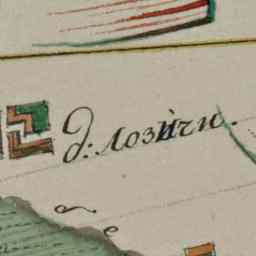 д: лозичи.